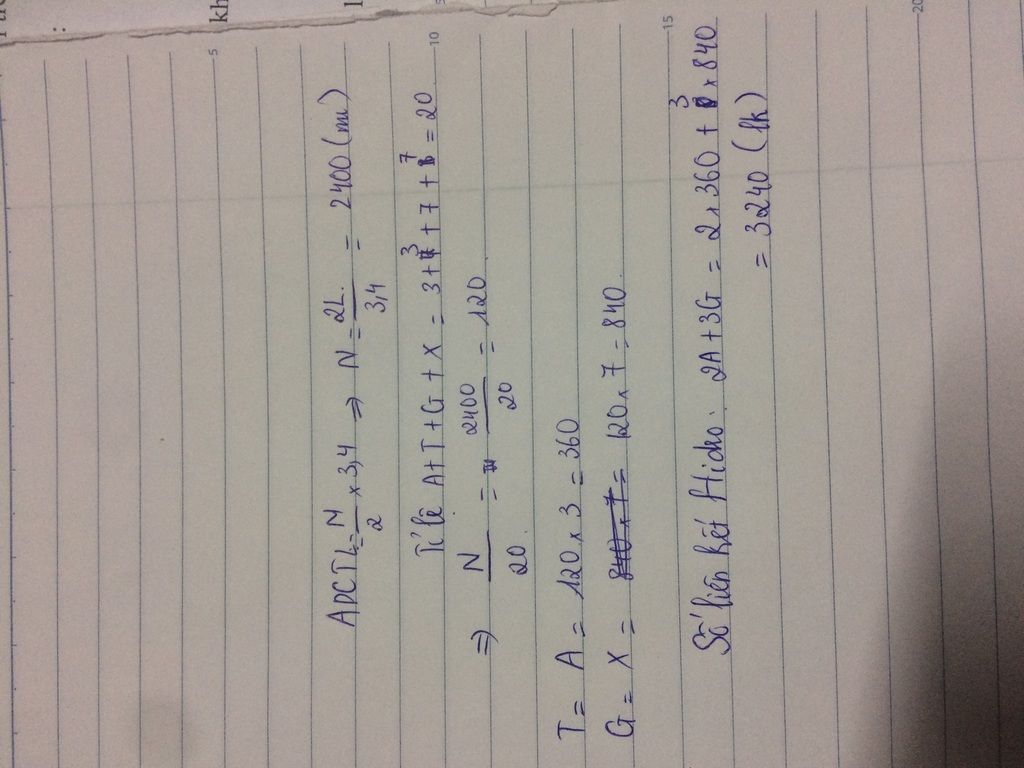 kh
5
10
15
20
ADCT L = N/2 x 3,4 => N = 2L/3,4 = 2400 (nu)
Tỉ lệ A+T+G+X = 3+3+7+7 = 20
=> N/20 = 2400/20 = 120
T = A = 120 x 3 = 360
G = X = 120 x 7 = 840.
Số liên kết Hidro: 2A+3G = 2 x 360 + 3 x 840
= 3240 (lk)